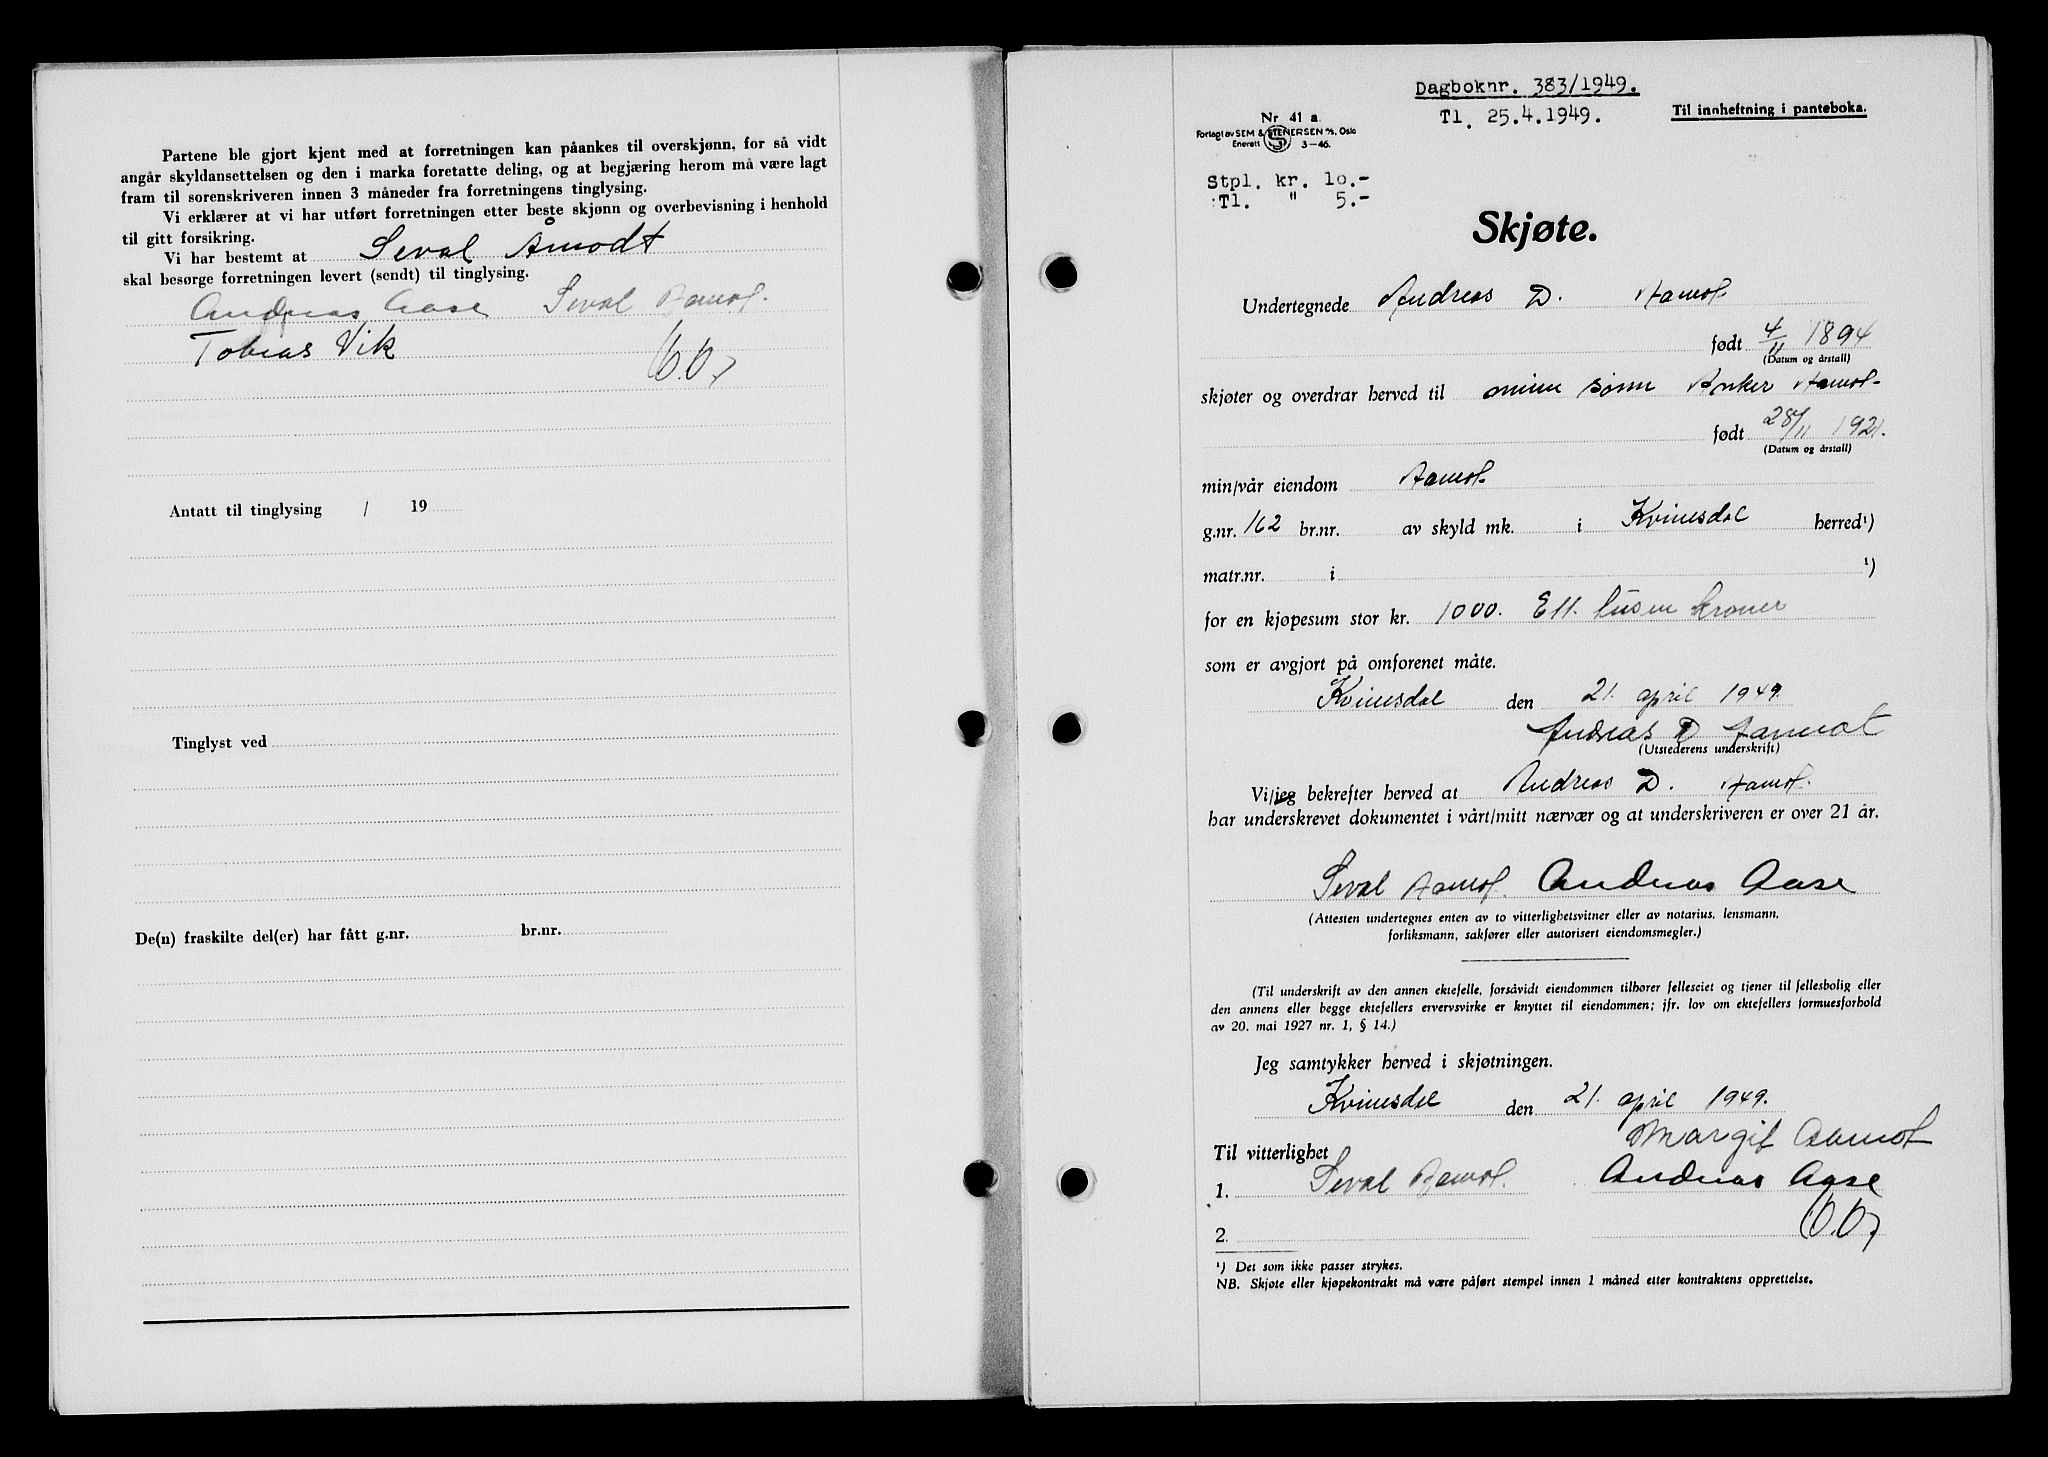 Partene ble gjort kjent med at forretningen kan påankes til overskjønn, for så vidt
angår skyldansettelsen og den i marka foretatte deling, og at begjæring herom må være lagt
fram til sorenskriveren innen 3 måneder fra forretningens tinglysing.
Vi erklærer at vi har utført forretningen etter beste skjønn og overbevisning i henhold
til gitt forsikring.
Vi har bestemt at Seval Åmodt
skal besørge forretningen levert (sendt) til tinglysing.
Andreas Aase Seval Aamot.
Tobias Vik
Antatt til tinglysing / 19
Tinglyst ved
De(n) fraskilte del(er) har fått g.nr. br.nr.
Dagboknr. 383/1949.
Tl. 25.4.1949.
Til innheftning i panteboka.
Nr 41 a
Forlagt av SEM & STENERSEN A/S, Oslo
Enerett S 3-46.
Stpl. kr. 10.-
Tl. " 5.-
Skjøte.
Undertegnede Andreas D. Aamot
født 4/11 1894
(Datum og årstall)
skjøter og overdrar herved til min sønn Anker Aamot
født 28/11 1921.
(Datum og årstall)
min/vår eiendom Aamot
g.nr. 162 br.nr. av skyld mk. i Kvinesdal herred¹)
matr.nr. i ¹)
for en kjøpesum stor kr. 1000. Ett tusen kroner
som er avgjort på omforenet måte.
Kvinesdal den 21. april 1949.
Andreas D Aamot
(Utstederens underskrift)
Vi/jeg bekrefter herved at Andreas D. Aamot.
har underskrevet dokumentet i vårt/mitt nærvær og at underskriveren er over 21 år.
Seval Aamot. Andreas Aase
(Attesten undertegnes enten av to vitterlighetsvitner eller av notarius, lensmann,
forliksmann, sakfører eller autorisert eiendomsmegler.)
(Til underskrift av den annen ektefelle, forsåvidt eiendommen tilhører felleseiet og tjener til fellesbolig eller
den annens eller begge ektefellers ervervsvirke er knyttet til eiendommen; jfr. lov om ektefellers formuesforhold
av 20. mai 1927 nr. 1, § 14.)
Jeg samtykker herved i skjøtningen.
Kvinesdal den 21. april 1949.
Margit Aamot
Til vitterlighet
1. Seval Aamot. Andreas Aase
2.
¹) Det som ikke passer strykes.
NB. Skjøte eller kjøpekontrakt må være påført stempel innen 1 måned etter kontraktens opprettelse.